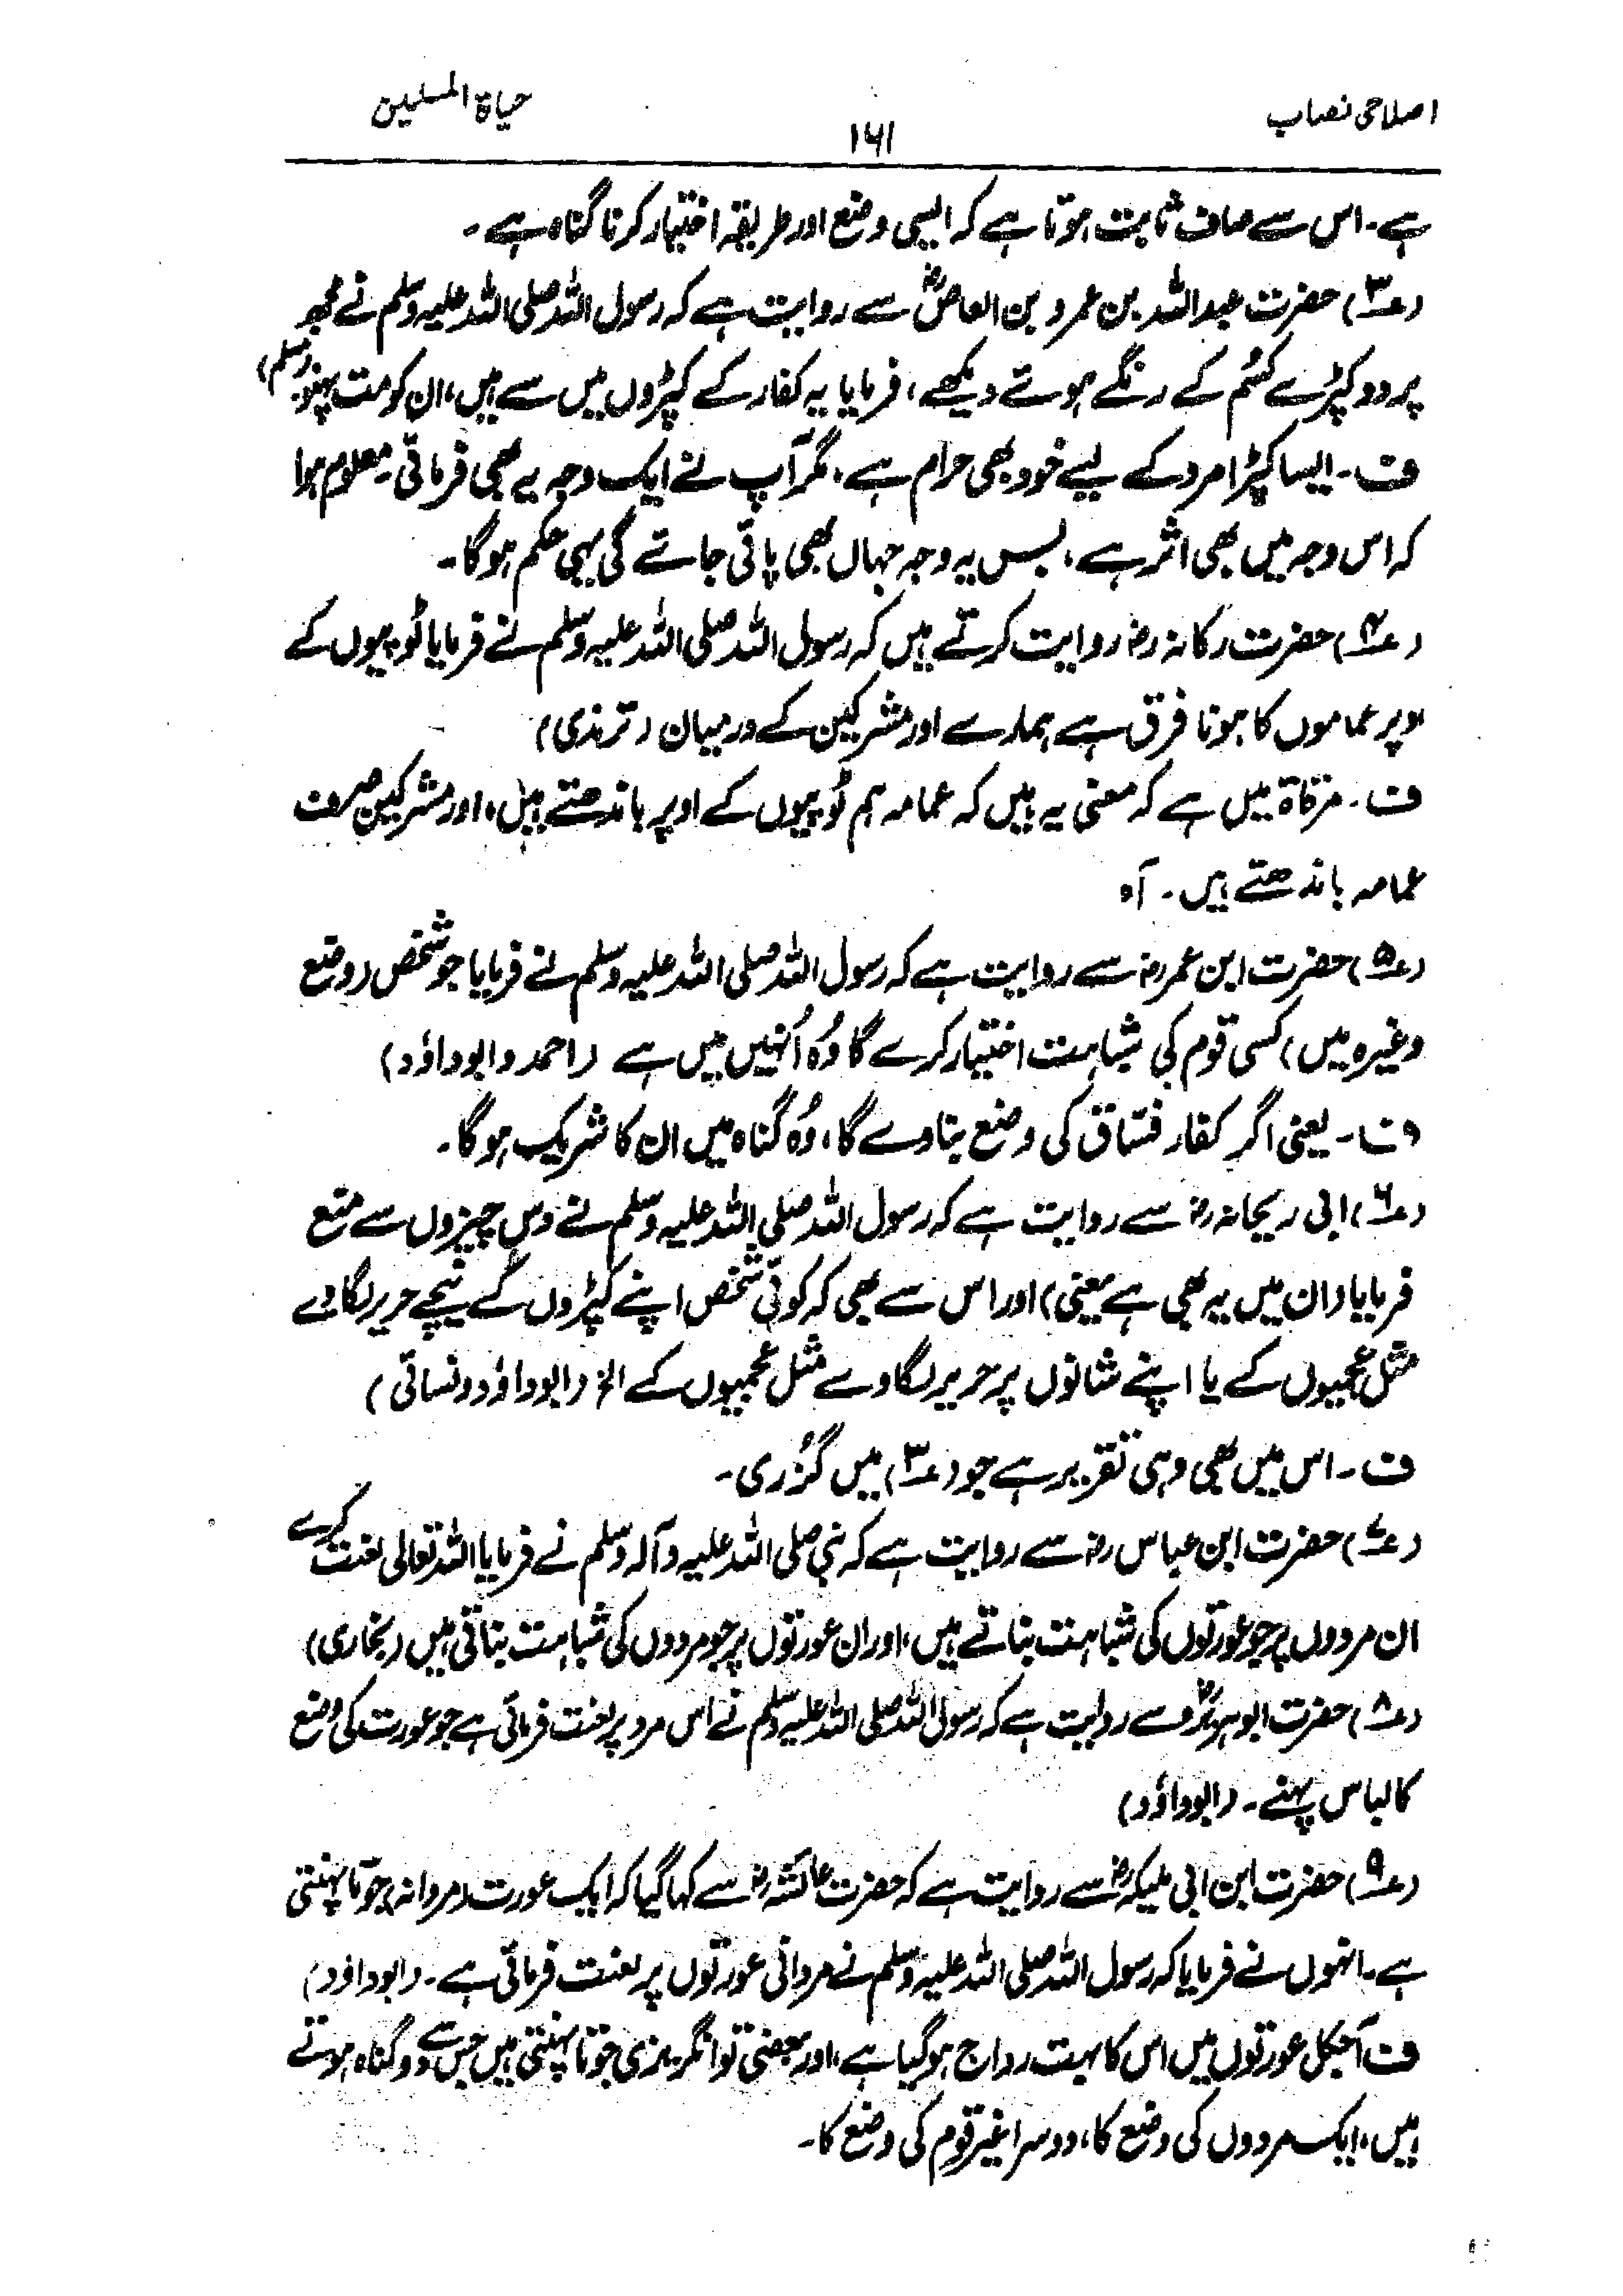 اصلاحی نصاب
۱۶۱
حیاۃ المسلمین
ہے۔ اس سے صاف ثابت ہوتا ہے کہ ایسی وضع اور طریقہ اختیار کرنا گناہ ہے۔
(۳) حضرت عبداللہ بن عمرو بن العاصؓ سے روایت ہے کہ رسول اللہ صلی اللہ علیہ وسلم نے مجھ
پر دو کپڑے کُسم کے رنگے ہوئے دیکھے، فرمایا یہ کفار کے کپڑوں میں سے ہیں، ان کو مت پہنو۔ (مسلم)
ف۔ ایسا کپڑا مرد کے لیے خود بھی حرام ہے، مگر آپ نے ایک وجہ یہ بھی فرمائی۔ معلوم ہوا
کہ اس وجہ میں بھی اثر ہے، بس یہ وجہ جہاں بھی پائی جائے گی یہی حکم ہوگا۔
(۴) حضرت رکانہ رض روایت کرتے ہیں کہ رسول اللہ صلی اللہ علیہ وسلم نے فرمایا ٹوپیوں کے
اوپر عماموں کا ہونا فرق ہے ہمارے اور مشرکین کے درمیان (ترمذی)
ف۔ مرقاۃ میں ہے کہ معنی یہ ہیں کہ عمامہ ہم ٹوپیوں کے اوپر باندھتے ہیں، اور مشرکین صرف
عمامہ باندھتے ہیں۔ آہ
(۵) حضرت ابن عمر رض سے روایت ہے کہ رسول اللہ صلی اللہ علیہ وسلم نے فرمایا جو شخص (وضع
وغیرہ میں) کسی قوم کی شباہت اختیار کرے گا وُہ اُنہیں میں ہے (احمد و ابوداؤد)
ف۔ یعنی اگر کفار فسّاق کی وضع بناوے گا، وُہ گناہ میں ان کا شریک ہوگا۔
(۶) ابی ریحانہ رض سے روایت ہے کہ رسول اللہ صلی اللہ علیہ وسلم نے دس چیزوں سے منع
فرمایا (ان میں یہ بھی ہے یعنی) اور اس سے بھی کہ کوئی شخص اپنے کپڑوں کے نیچے حریر لگاوے
مثل عجمیوں کے یا اپنے شانوں پر حریر لگاوے مثل عجمیوں کے الخ (ابوداؤد و نسائی)
ف۔ اس میں بھی وہی تقریر ہے جو (۳) میں گزُری۔
(۷) حضرت ابن عباس رض سے روایت ہے کہ نبی صلی اللہ علیہ وآلہ وسلم نے فرمایا اللہ تعالیٰ لعنت کرے
ان مردوں پر جو عورتوں کی شباہت بناتے ہیں، اور ان عورتوں پر جو مردوں کی شباہت بناتی ہیں (بخاری)
(۸) حضرت ابوہریرہؓ سے روایت ہے کہ رسول اللہ صلی اللہ علیہ وسلم نے اس مرد پر لعنت فرمائی ہے جو عورت کی وضع
کا لباس پہنے۔ (ابوداؤد)
(۹) حضرت ابن ابی ملیکہ رض سے روایت ہے کہ حضرت عائشہ رض سے کہا گیا کہ ایک عورت (مردانہ) جوتا پہنتی
ہے۔ انہوں نے فرمایا کہ رسول اللہ صلی اللہ علیہ وسلم نے مردانی عورتوں پر لعنت فرمائی ہے۔ (ابوداؤد)
ف آجکل عورتوں میں اس کا بہت رواج ہوگیا ہے، اور بعضی تو انگریزی جوتا پہنتی ہیں جس سے دو گناہ ہوتے
ہیں، ایک مردوں کی وضع کا، دوسرا غیر قوم کی وضع کا۔